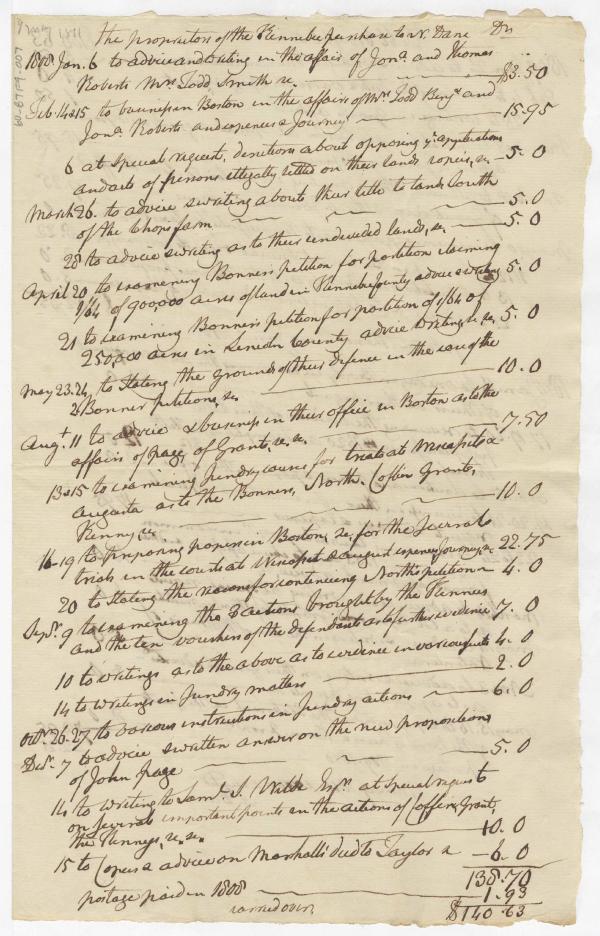 The proprietors of the Kennebec purchase to N. Dane Dr
1808 Jan. 6 to advice and writing in the affair of Jona. and Thomas
Roberts Mrs Todd Smith &c. $3.50
Feb. 14 & 15 to business in Boston in the affairs of Mrs Todd Benja and
Jona Roberts and expences & Journey 15.95
6 at special request, about opposing ye applications
and acts of persons illegally settled on their lands &c. 5.0
March 26. to advice & writing about their title to lands South
of the Chops farm 5.0
28 to advice & writing as to their undivided lands, &c. 5.0
April 20 to examining Bonner's petition for partition claiming
1/64 of 900,000 acres of land in Kennebec County advice & writing 5.0
21 to examining Bonner's petition for partition of 1/64 of
250,000 acres in Lincoln County advice writing, &c. &c. 5.0
May 23.24, to stating the grounds of their defence in the case of the
2 Bonner petitions, &c. 10.0
Augt. 11 to advice & business in their office in Boston as to the
affairs of Page, of Grants, &c. &c. 7.50
13 & 15 to examining sundry causes for trials at Wiscasset &
Augusta as to the Bonners, North. Coffin Grants,
Kenny &c. 10.0
16-19 to preparing papers in Boston, &c. for the several
trials in the courts at Wiscasset & August expences Journey, &c 22.75
20 to stating the reasons for continuing North's petition 4.0
Sepr. 9 to examining the 3 actions brought by the Kennies
and the ten vouchers of the defendant as to further evidence 7.0
10 to writings as to the above as to evidence in various suits 4.0
14 to writings in sundry matters 2.0
Octr. 26.27, to various instructions in sundry actions 6.0
Decr. 7 to advice & written answer on the new propositions
of John Page 5.0
14 to writing to Saml. S. Wilde Esqr. at special request
on several important points in the actions of Coffin, Grant,
the Kennys, &c. &c. 10.0
15 to Copies & advice on Marshall's deed to Taylor 6.0
138.70
postage paid in 1808 1.93
carried over, $140.63
60-8799-007